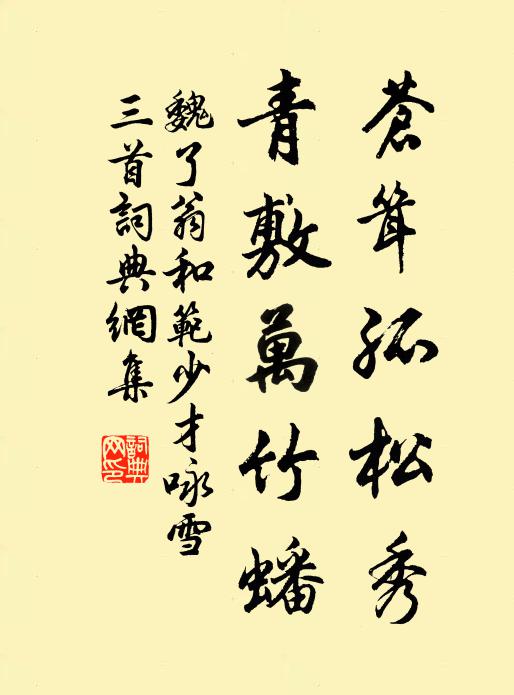 蒼聳孤松秀
青敷萬竹蟠
魏了翁和範少才咏雪
三首詞典網集
詞典網印